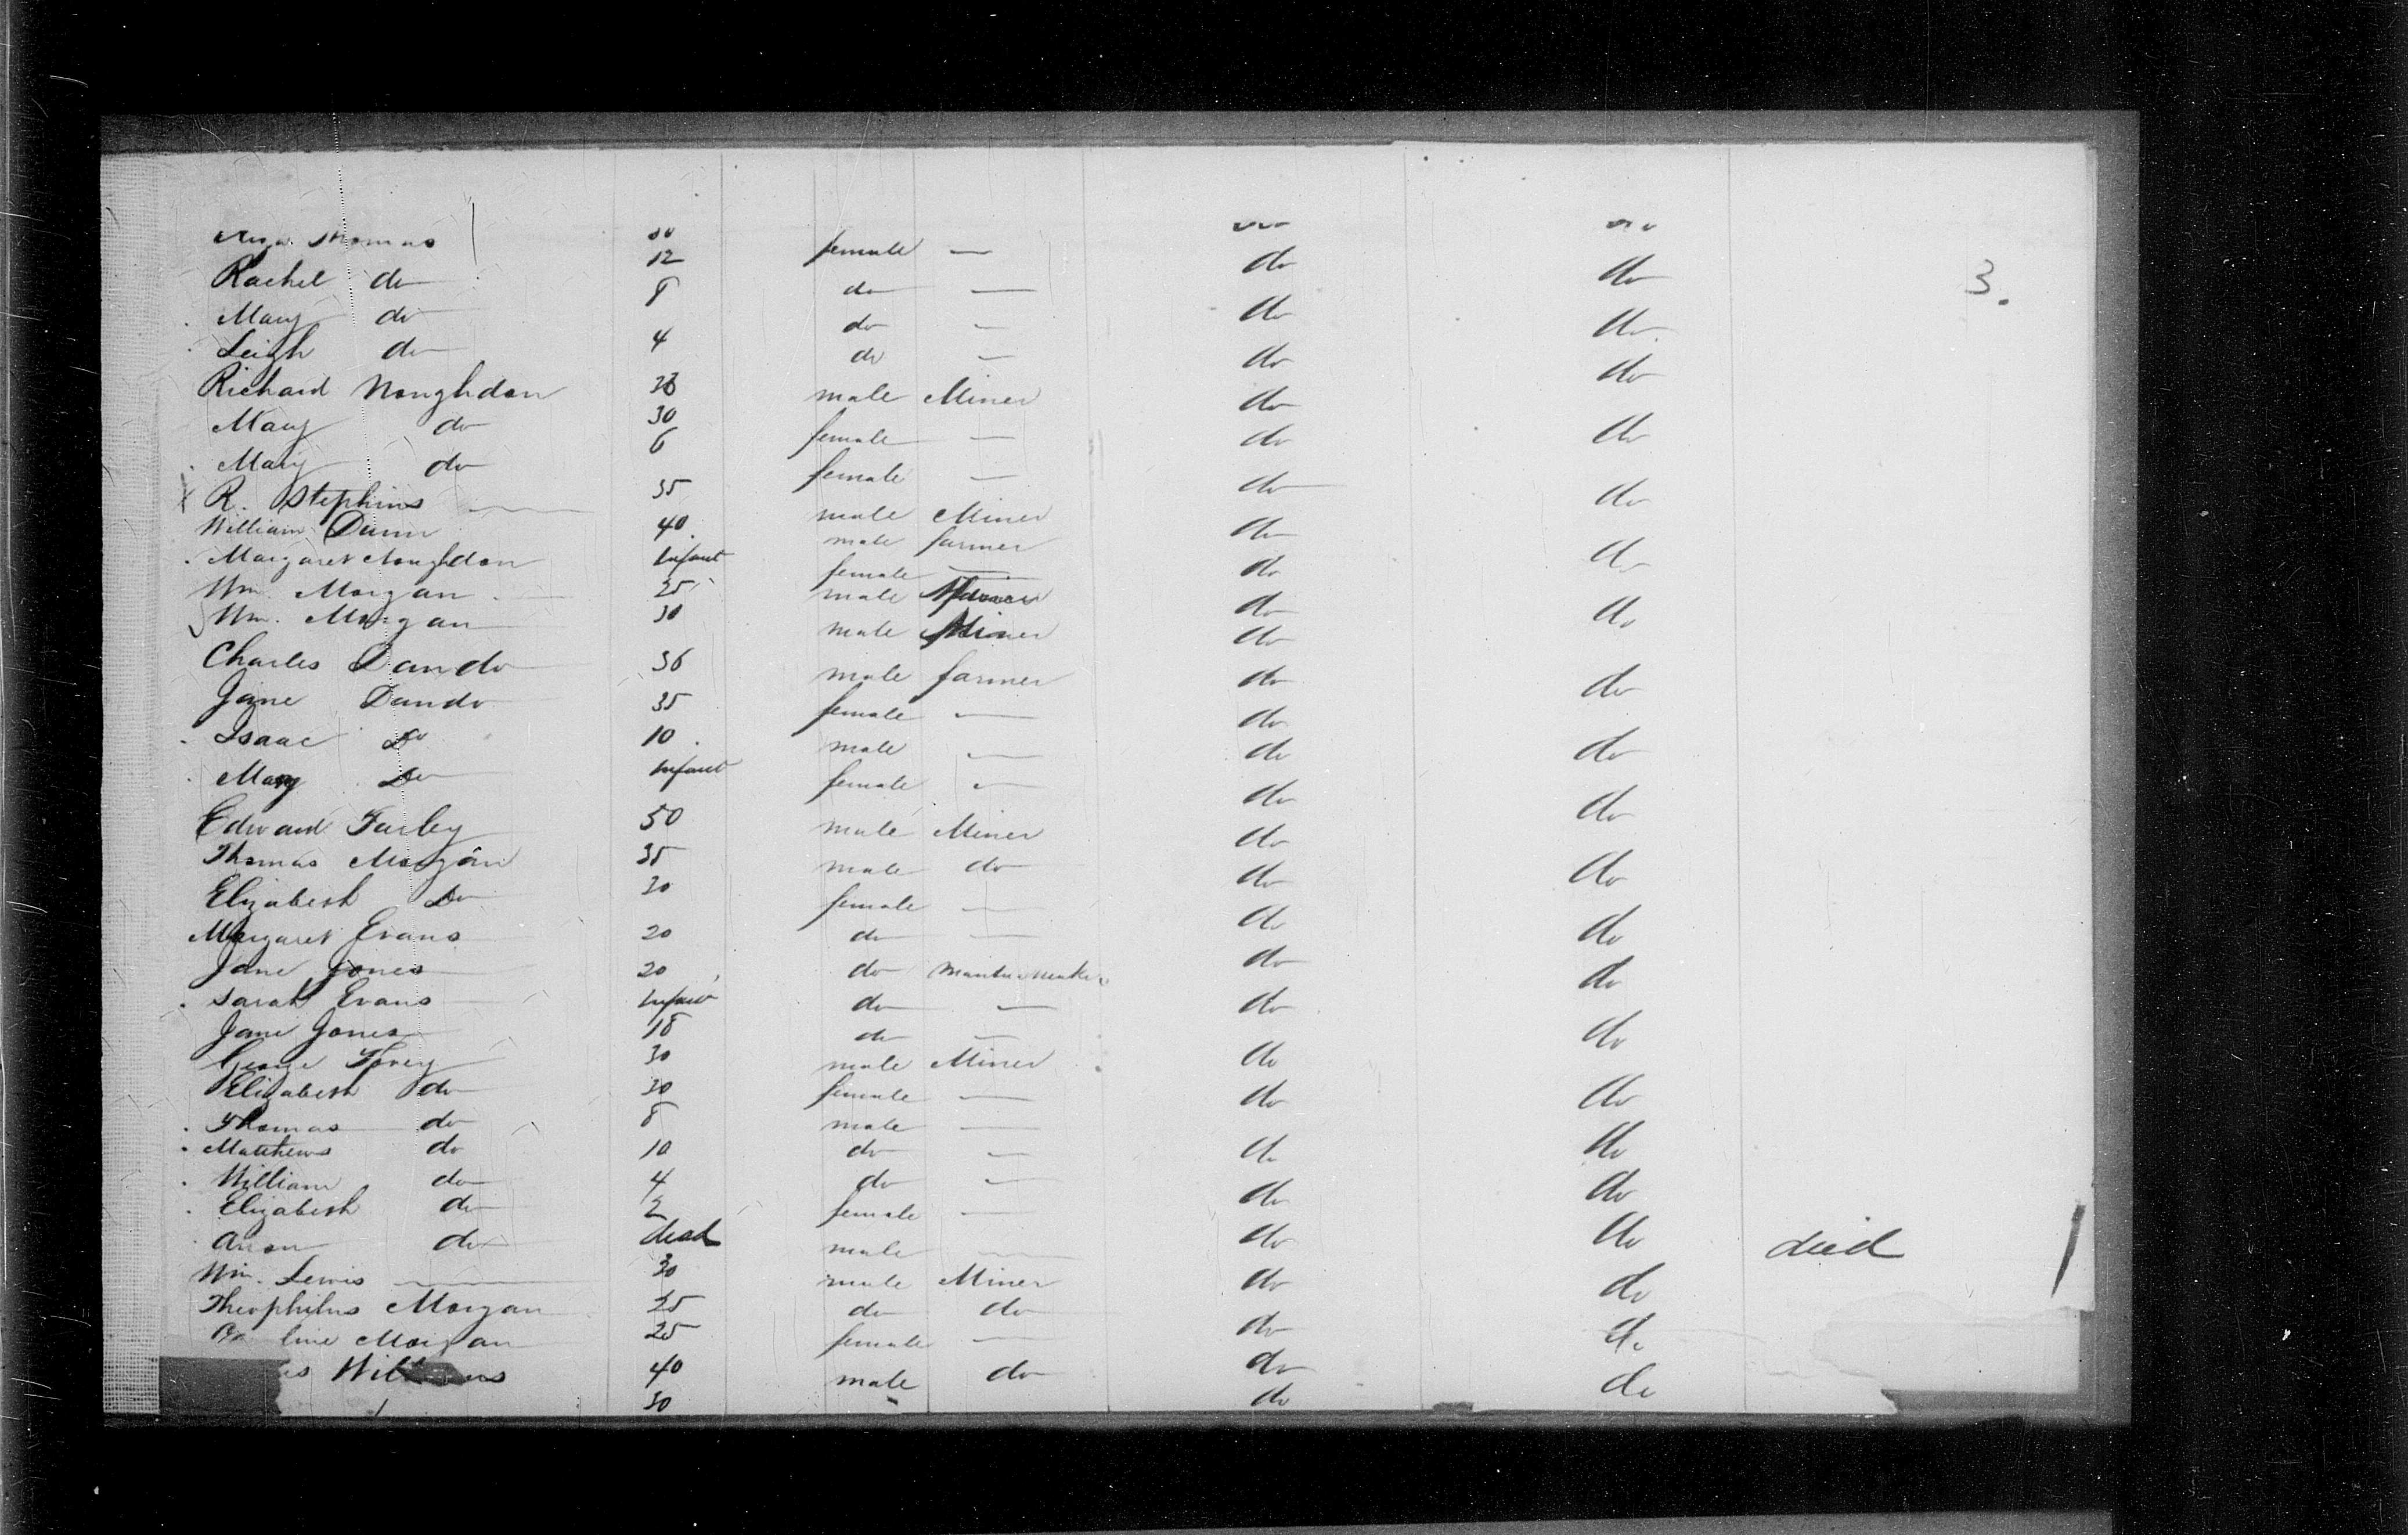 Thomas
Rachel do 12 female — do do
3.
Mary do 8 do — do do
Leigh do 4 do — do do
Richard Noughdon male Miner do
Mary do 30 female — do do
Mary do 6 female — do do
R. Stephins 35 male Miner do
William Dunn 40. male farmer do
Margaret Noughdon Infant female — do
Wm. Morgan 25 male do do
Wm. Morgan 30 male Miner do
Charles Dando 36 male farmer do do
Jane Dando 35 female — do
Isaac Do 10 male — do do
Mary Do Infant female — do do
Edward Farley 50 male Miner do
Thomas Morgan 35 male do do do
Elizabeth Do 30 female — do
Margaret Evans 20 do — do do
Jane Jones 20 do Mantua Maker do do
Sarah Evans Infant do — do
Jane Jones 18 do — do
George Tovey 30 male Miner do
Elizabeth do 30 female — do do
Thomas do 8 male —
Matthews do 10 do — do do
William do 4 do — do do
Elizabeth do 2 female —
Aron do dead male — do do died
Wm. Lewis 30 male Miner do do
Theophilus Morgan 25 do do do
line Morgan 25 female — do
Williams 40 male do do do
30 do